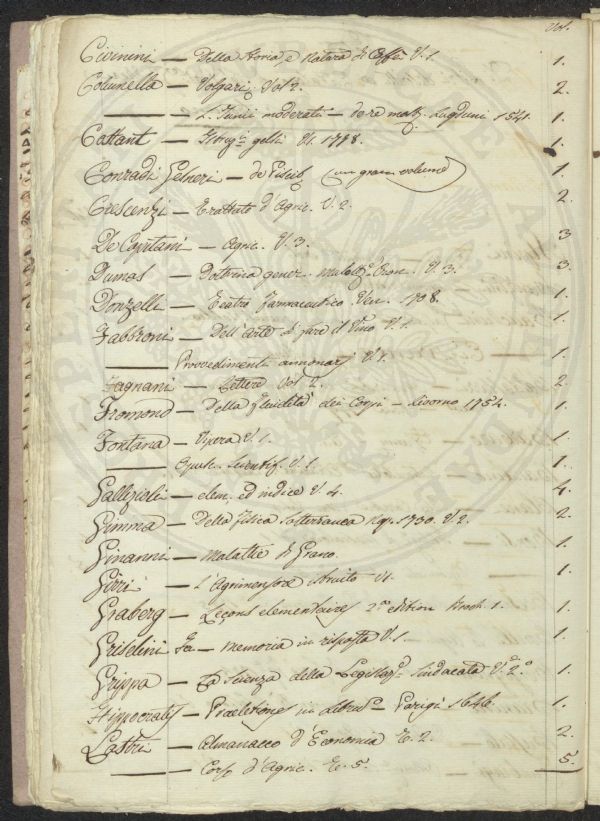 Vol.
Civinini — Della Storia, e natura di Caffè V. 1. 1.
Columella — Volgariz. Vol. 2. 2.
—— L. Junii moderati — de re Lugduni 1541. 1.
Cattani — V. 1. 1778. 1.
Conradi Gesneri — de Piscib. (un gran volume) 1.
Crescenzi — Trattato d'Agric. V. 2. 2.
De Capitani — Agric. V. 3. 3
Dumas — Dottrina gener. V. 3. 3.
Donzelli — Teatro Farmaceutico Ven. 1708. 1.
Fabbroni — Dell'arte di fare il Vino V. 1. 1.
—— Provvedimenti annonarj V. 1. 1.
Fagnani — Lettere Vol 2. 2.
Fromond — Della fluidità dei Corpi — Livorno 1754. 1.
Fontana — Vipera V. 1. 1.
—— Opusc. Scientif. V. 1 1.
Gallizioli — elem. ed indice V. 4. 4.
Gimma — Della fisica Sotterranea Nap. 1730. V. 2. 2.
Ginanni — Malattie di Grano. 1.
Girri — L'Agrimensore istruito V. 1. 1.
Graberg — Leçons elementaires 2.a edition 1. 1.
Griselini — Memoria in risposta V. 1. 1.
Grippa — La Scienza della Legislaz.e Sindacata V. 2.o 1.
Hippocrates — in Parigi 1646. 1.
Lastri — Almanacco d'Economia T. 2. 2.
—— Corso d'Agric. T. 5. 5.